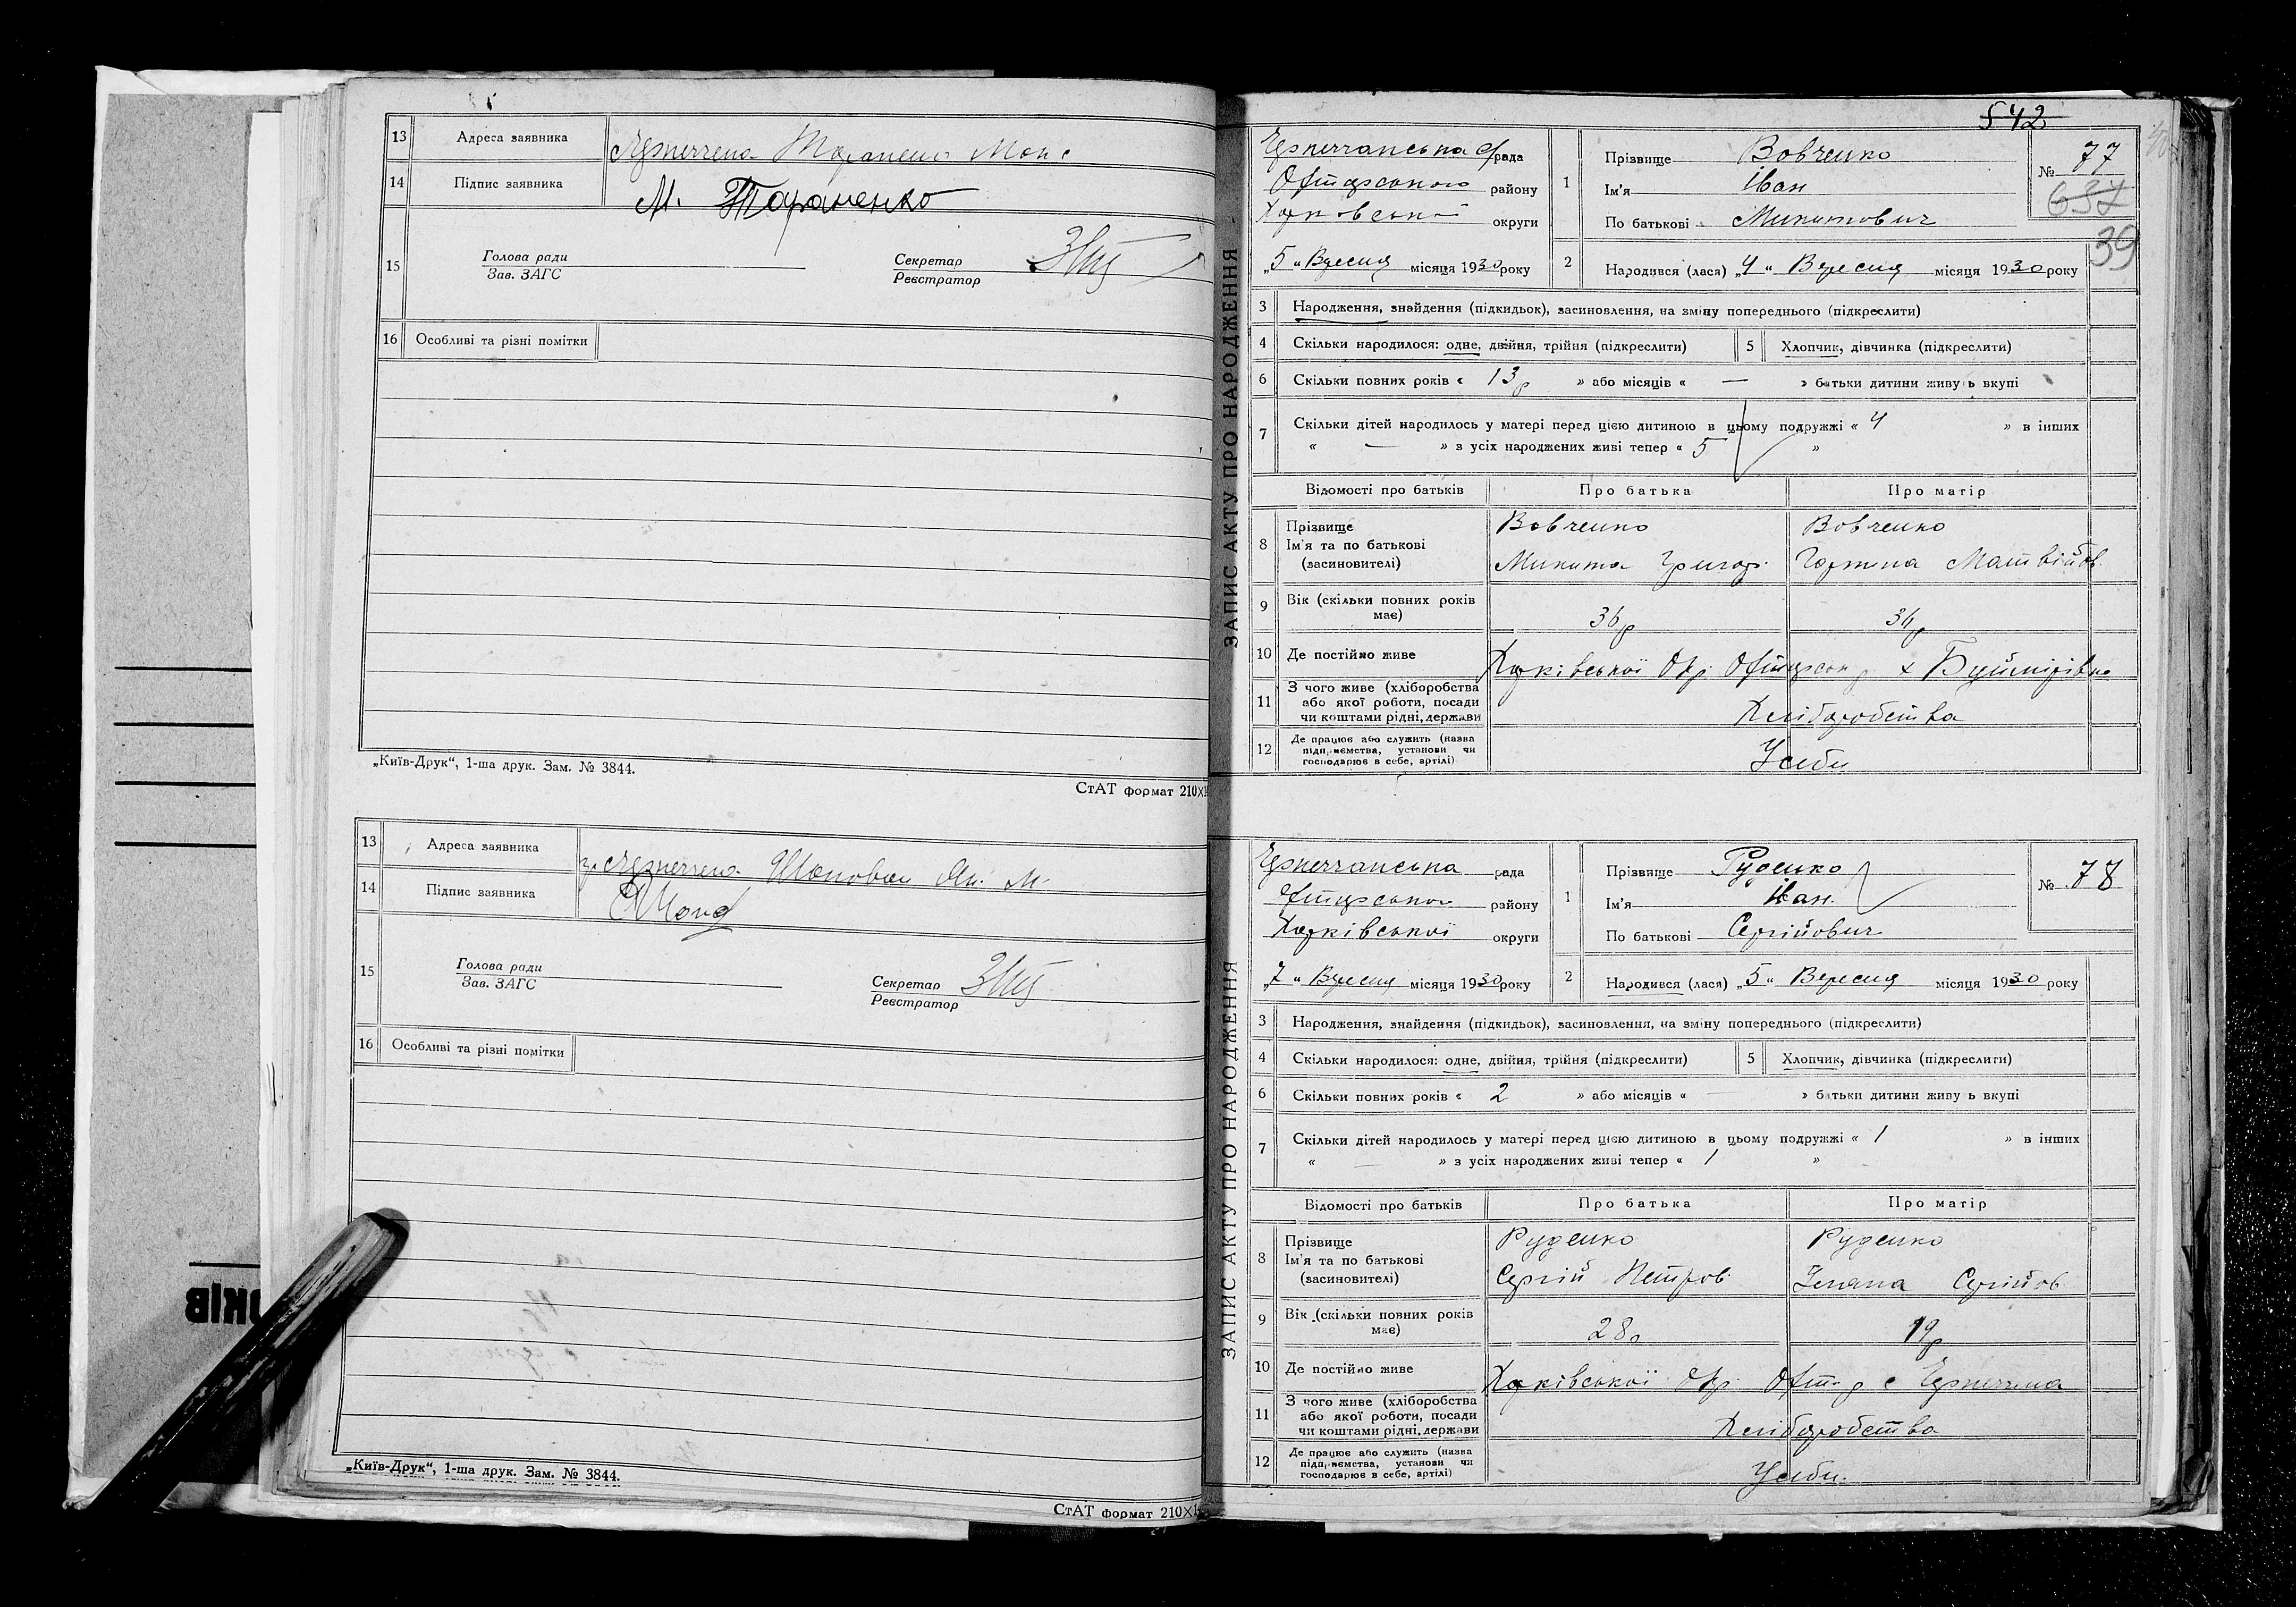 13 Адреса заявника
14 Підпис заявника М. Тараненко
15 Голова ради
Зав. ЗАГС
Секретар
Реєстратор
16 Особливі та різні помітки
„Київ-Друк“, 1-ша друк. Зам. № 3844.
СтАТ формат 210×1
13 Адреса заявника
14 Підпис заявника
15 Голова ради
Зав. ЗАГС
Секретар
Реєстратор
16 Особливі та різні помітки
„Київ-Друк“, 1-ша друк. Зам. № 3844.
СтАТ формат 210×1
ОКІВ
542
ЗАПИС АКТУ ПРО НАРОДЖЕННЯ
рада
району
округи
„5“ Вересня місяця 1930 року
1 Прізвище Вовченко
Ім'я Іван
По батькові Микитович
№ 77
637
39
2 Народився (лася) „4“ Вересня місяця 1930 року
3 Народження, знайдення (підкидьок), засиновлення, на зміну попереднього (підкреслити)
4 Скільки народилося: одне, двійня, трійня (підкреслити) 5 Хлопчик, дівчинка (підкреслити)
6 Скільки повних років « 13р » або місяців « — » батьки дитини живуть вкупі
7 Скільки дітей народилось у матері перед цією дитиною в цьому подружжі « 4 » в інших
« — » з усіх народжених живі тепер « 5 »
Відомості про батьків Про батька Про матір
8 Прізвище Вовченко Вовченко
Ім'я та по батькові
(засновителі) Микита Григор. Матвійов.
9 Вік (скільки повних років
має) 36р
10 Де постійно живе Харківської Окр. х Буймерівка
11 З чого живе (хліборобства
або якої роботи, посади
чи коштами рідні, держави Хліборобства
12 Де працює або служить (назва
підприємства, установи чи
господарює в себе, артілі) У себи
ЗАПИС АКТУ ПРО НАРОДЖЕННЯ
рада
району
Харківської округи
„7“ Вересня місяця 1930 року
1 Прізвище Руденко
Ім'я Іван
По батькові Сергійович
№ 78
2 Народився (лася) „5“ Вересня місяця 1930 року
3 Народження, знайдення (підкидьок), засиновлення, на зміну попереднього (підкреслити)
4 Скільки народилося: одне, двійня, трійня (підкреслити) 5 Хлопчик, дівчинка (підкреслити)
6 Скільки повних років « 2 » або місяців « — » батьки дитини живуть вкупі
7 Скільки дітей народилось у матері перед цією дитиною в цьому подружжі « 1 » в інших
« — » з усіх народжених живі тепер « 1 »
Відомості про батьків Про батька Про матір
8 Прізвище Руденко Руденко
Ім'я та по батькові
(засиновителі) Сергій Петров. Сергійов.
9 Вік (скільки повних років
має) 28р 19р
10 Де постійно живе Харківської Окр. Охт. р с
11 З чого живе (хліборобства
або якої роботи, посади
чи коштами рідні, держави Хліборобства
12 Де працює або служить (назва
підприємства, установи чи
господарює в себе, артілі) У себи.